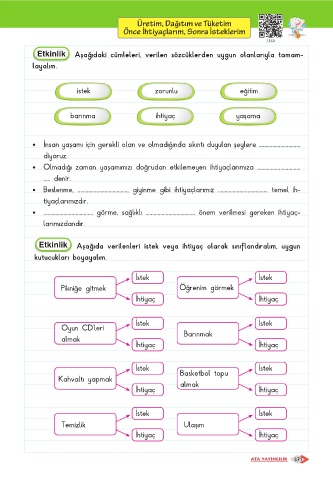 Üretim, Dağıtım ve Tüketim
Önce İhtiyaçlarım, Sonra İsteklerim
Etkinlik Aşağıdaki cümleleri, verilen sözcüklerden uygun olanlarıyla tamam-
layalım.
istek zorunlu eğitim
barınma ihtiyaç yaşama
• İnsan yaşamı için gerekli olan ve olmadığında sıkıntı duyulan şeylere ........................
diyoruz.
• Olmadığı zaman yaşamımızı doğrudan etkilemeyen ihtiyaçlarımıza ........................
.... denir.
• Beslenme, ........................, giyinme gibi ihtiyaçlarımız ........................ temel ih-
tiyaçlarımızdır.
• ........................ görme, sağlıklı ........................ önem verilmesi gereken ihtiyaç-
larımızdandır.
Etkinlik Aşağıda verilenleri istek veya ihtiyaç olarak sınıflandıralım, uygun
kutucukları boyayalım.
Pikniğe gitmek İstek İhtiyaç
Öğrenim görmek İstek İhtiyaç
Oyun CD'leri
almak İstek İhtiyaç
Barınmak İstek İhtiyaç
Kahvaltı yapmak İstek İhtiyaç
Basketbol topu
almak İstek İhtiyaç
Temizlik İstek İhtiyaç
Ulaşım İstek İhtiyaç
ATA YAYINCILIK